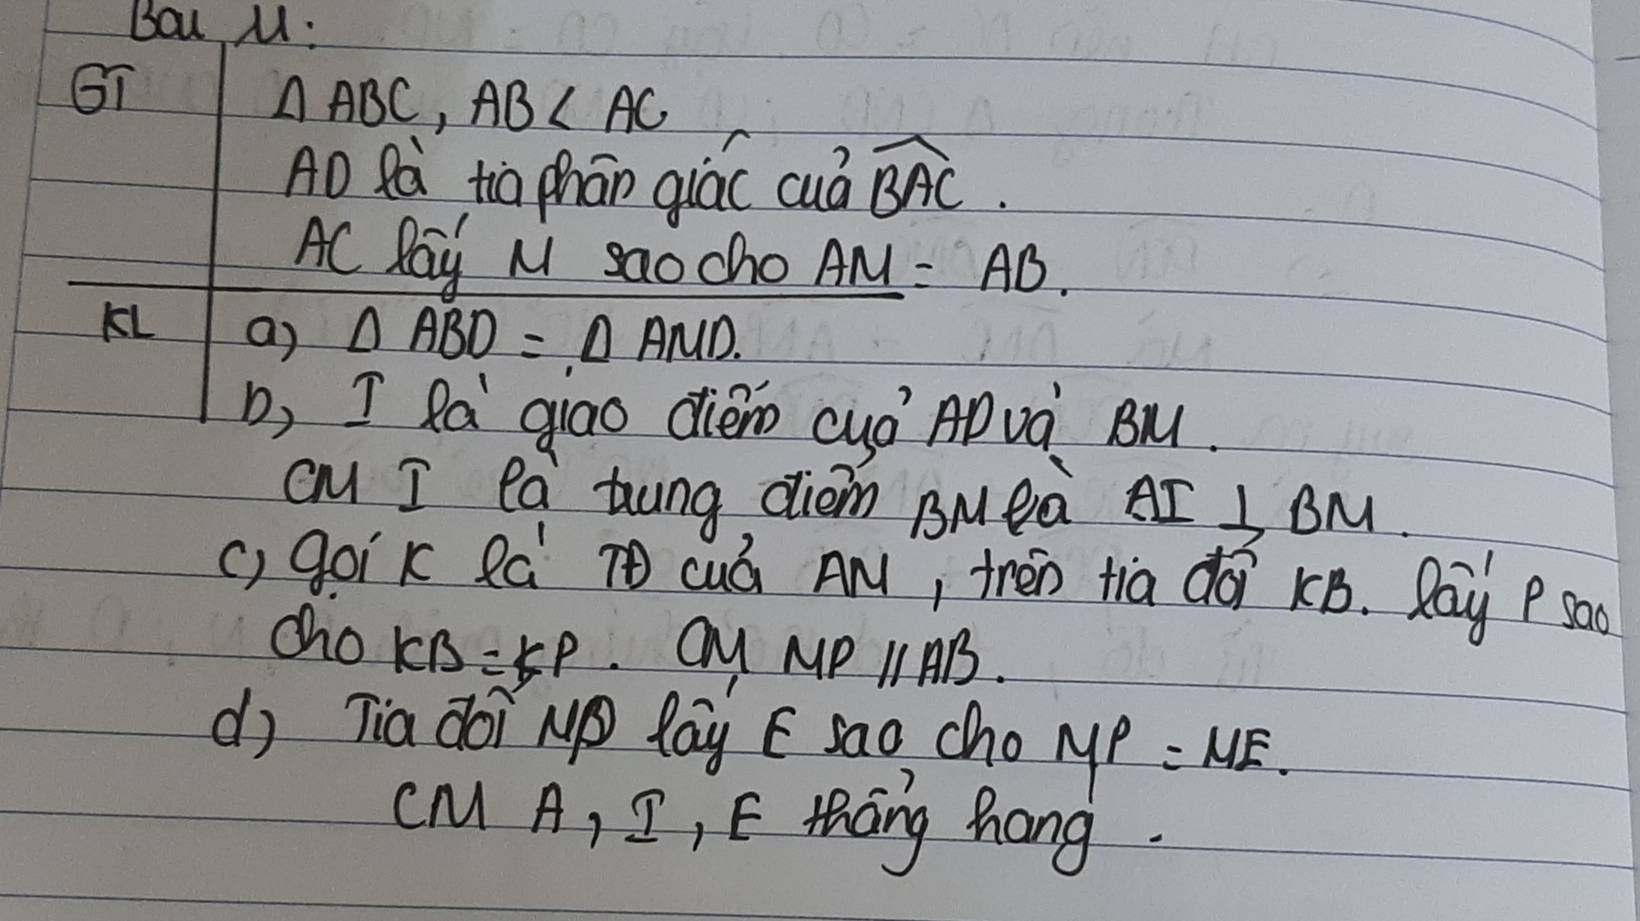 Bài 11:
GT Δ ABC, AB < AC
AD là tia phân giác của BAC.
AC lấy M sao cho AM = AB.
KL a) Δ ABD = Δ AMD.
b) I là giao điểm của AD và BM.
CM I là trung điểm BM là AI ⊥ BM.
c) gọi K là TĐ của AM, trên tia đối KB. lấy P sao
cho KB = KP. CM MP // AB.
d) Tia đối MP lấy E sao cho MP = ME.
CM A, I, E thẳng hàng.